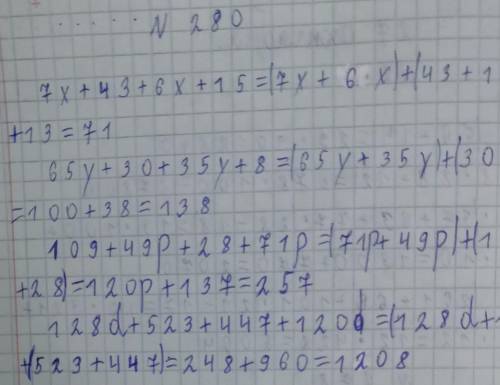 N 280
7x+43+6x+15=(7x+6·x)+(43+1
+13=71
65y+30+35y+8=(65y+35y)+(30
=100+38=138
109+49p+28+71p=(71p+49p)+(1
+28)=120p+137=257
128d+523+447+120d=(128d+
+(523+447)=248+960=1208